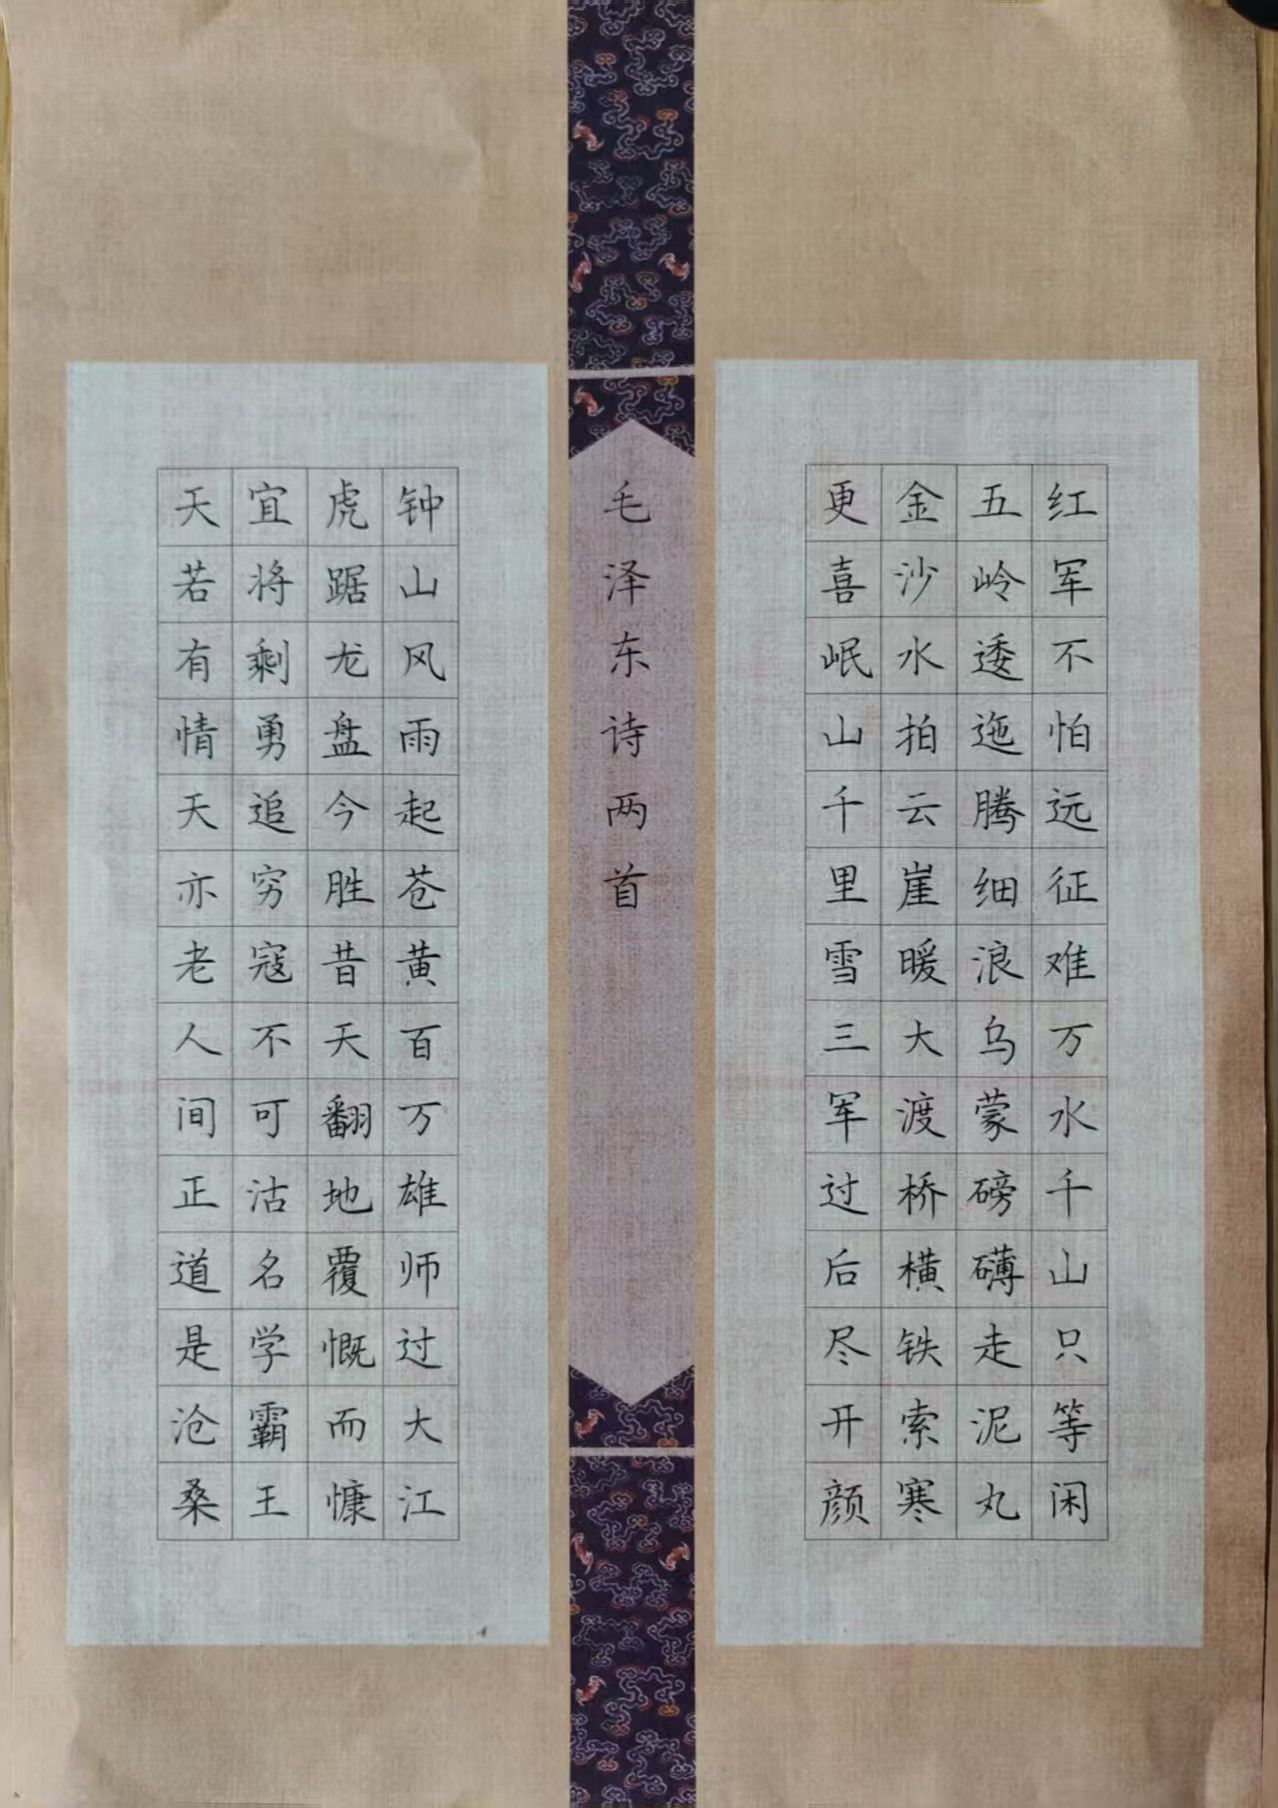 红军不怕远征难万水千山只等闲
五岭逶迤腾细浪乌蒙磅礴走泥丸
金沙水拍云崖暖大渡桥横铁索寒
更喜岷山千里雪三军过后尽开颜
毛泽东诗两首
钟山风雨起苍黄百万雄师过大江
虎踞龙盘今胜昔天翻地覆慨而慷
宜将剩勇追穷寇不可沽名学霸王
天若有情天亦老人间正道是沧桑